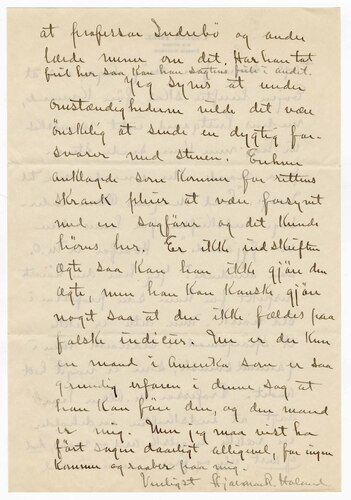 at professor Indrebö og andre
lærde mener om det. Har han tat
feil her saa kan han sagtens feile i andet.
Jeg synes at under
omstændighederne vilde det være
önskelig at sende en dygtig for-
svarer med stenen. Enhver
anklagede som kommer for rettens
skrank pleier at være forsynet
med en sagförer og det kunde
höves her. Er ikke indskriften
ægte saa kan han ikke gjöre den
ægte, men han kan kanske gjöre
noget saa at den ikke fældes paa
falske indicier. Nu er der kun
en mand i Amerika som er saa
grundig erfaren i denne sag at
han kan före den, og den mand
er mig. Men jeg maa vist ha
fört sagen daarligt alligevel, for ingen
kommer og raaber paa mig.
Venligst Hjalmar R. Holand